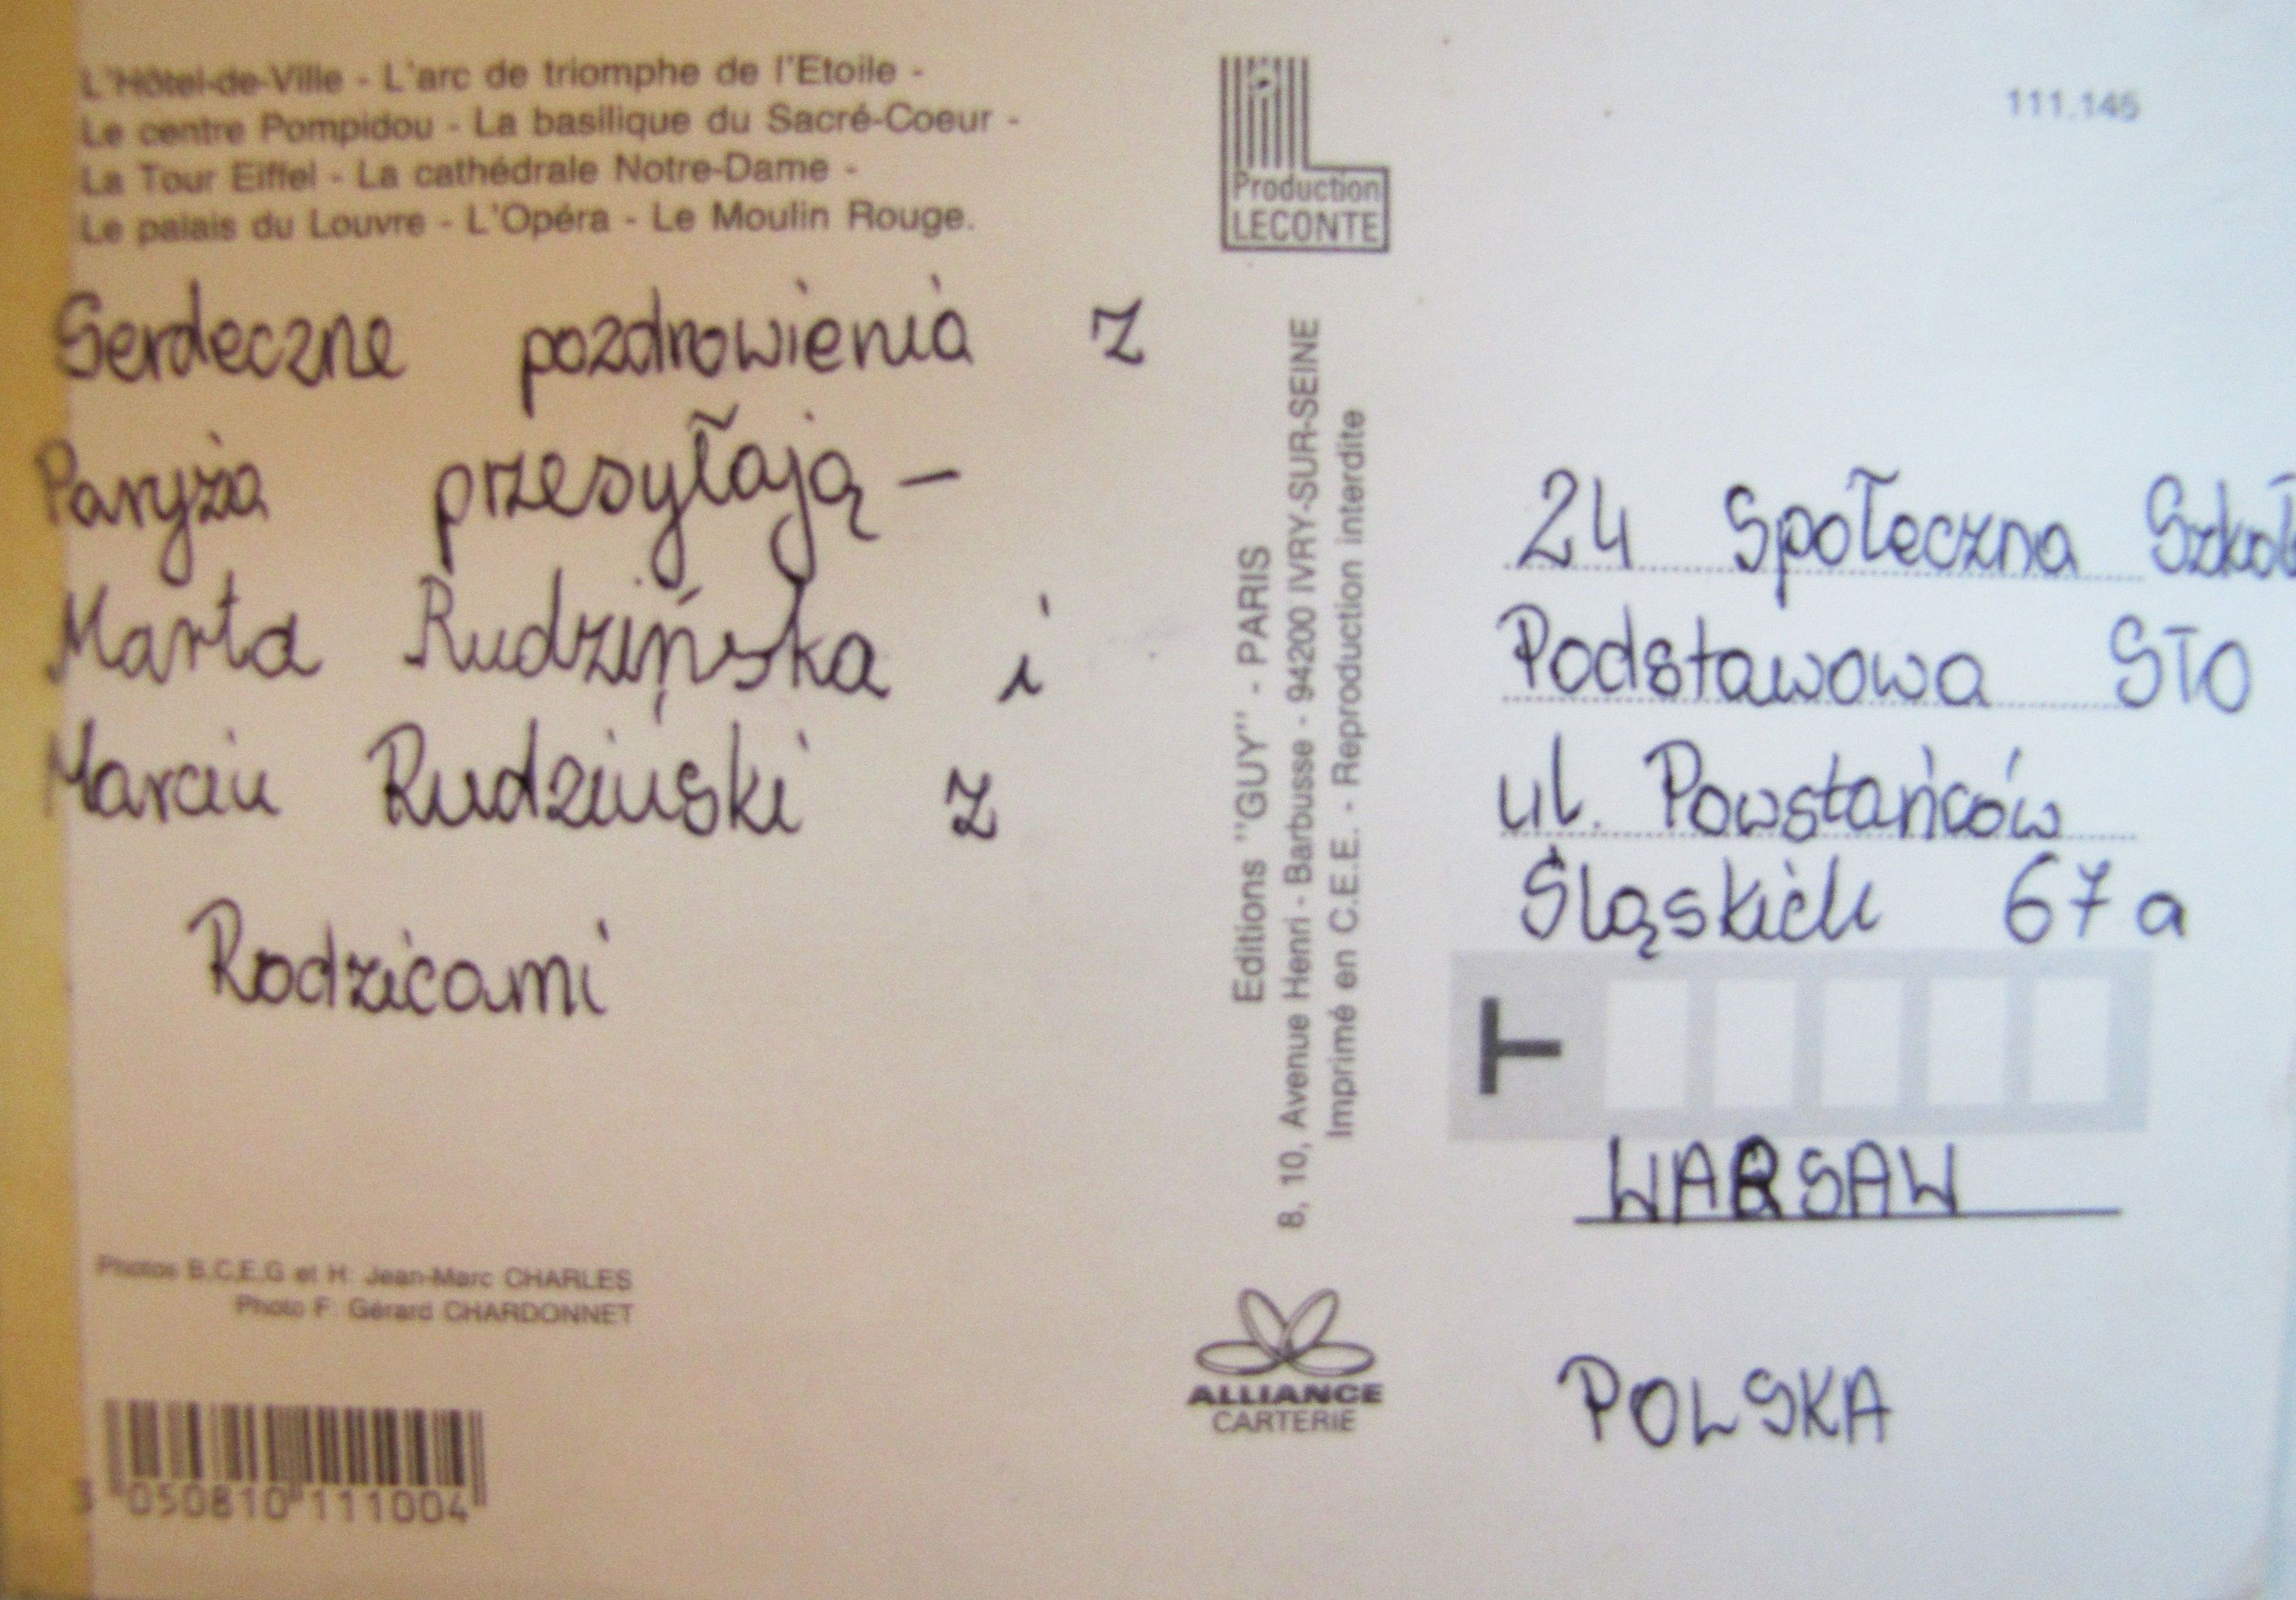 L'Hôtel-de-Ville - L'arc de triomphe de l'Etoile -
Le centre Pompidou - La basilique du Sacré-Coeur -
La Tour Eiffel - La cathédrale Notre-Dame -
Le palais du Louvre - L'Opéra - Le Moulin Rouge.
Serdeczne pozdrowienia z
Paryża przesyłają -
Marta Rudzińska i
Marcin Rudzinski z
Rodzicami
Photos B.C.E.G et H: Jean-Marc CHARLES
Photo F: Gérard CHARDONNET
3 050810 111004
Production
LECONTE
Editions "GUY" - PARIS
8, 10, Avenue Henri - Barbusse - 94200 IVRY-SUR-SEINE
Imprimé en C.E.E. - Reproduction interdite
ALLIANCE
CARTERIE
111.145
24 Społeczna Szkoł
Podstawowa STO
ul. Powstańców
Śląskich 67a
T
WARSAW
POLSKA